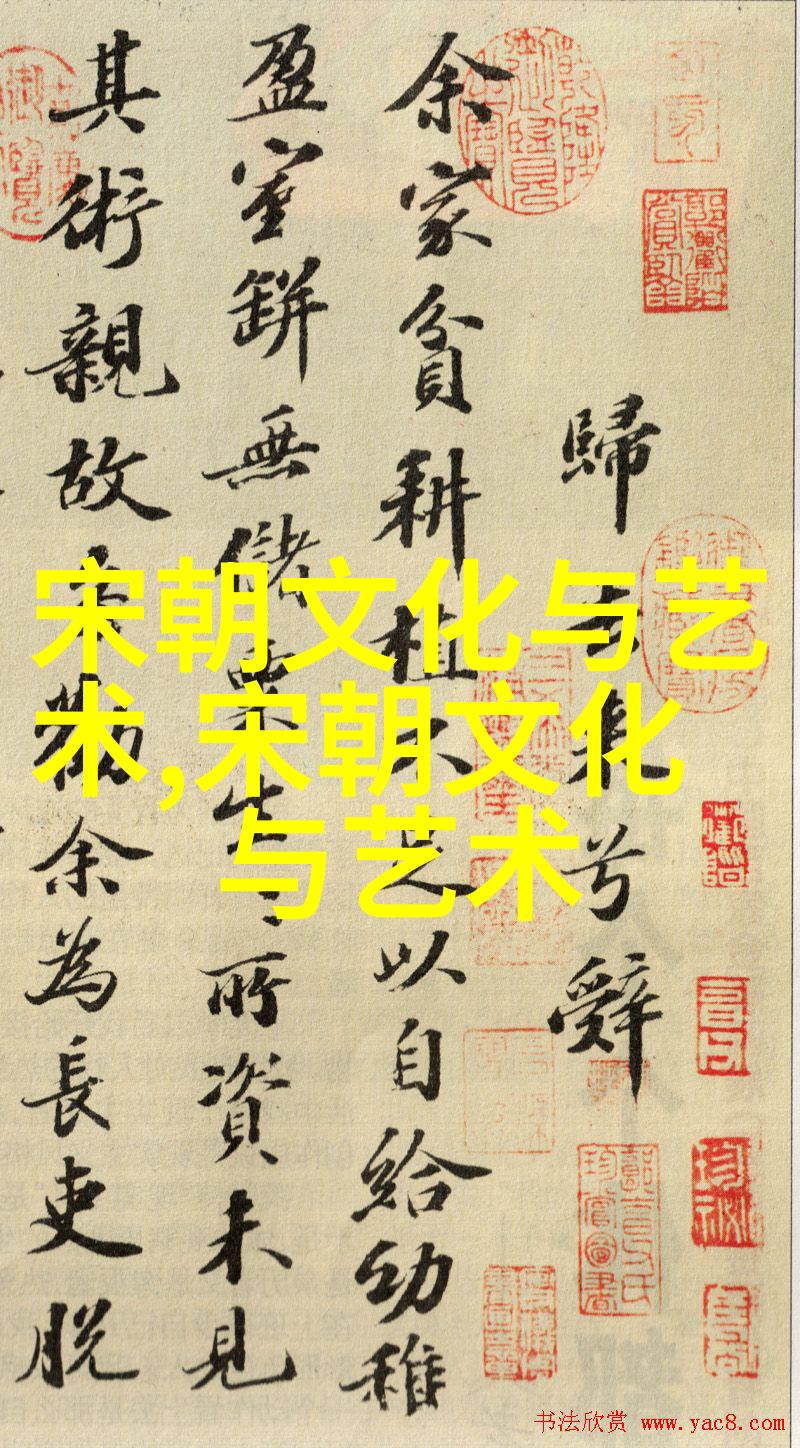 歸去来兮辭
余家貧耕植不足以自給幼稚
盈室缾無儲粟生々所資未見
其術親故多勸余為長吏脱
宋朝文化与艺
术,宋朝文化
与艺术
书法欣赏 www.yac8.com